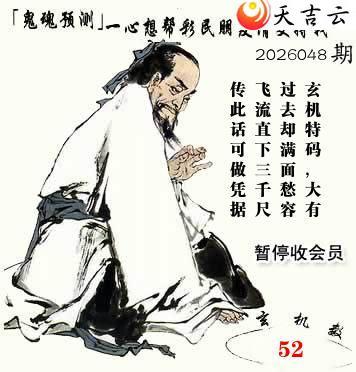 「鬼魂预测」一心想帮彩民朋
天吉云
2026048期
玄机特码，大有
过去却满面愁容
飞流直下三千尺
传此话可做凭据
暂停收会员
玄机
52